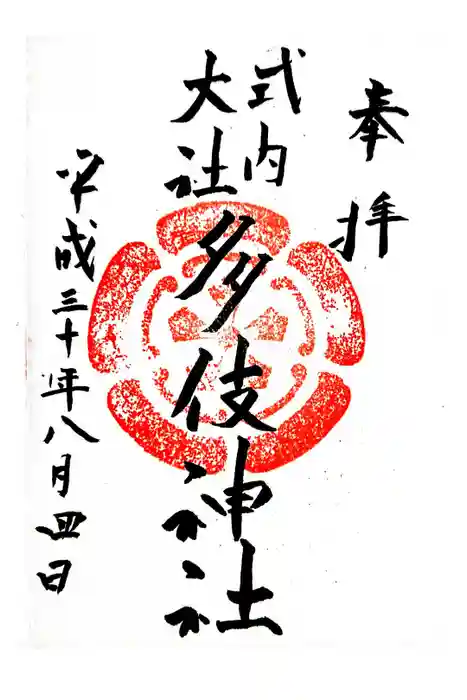 奉拝
式内
大社
多伎神社
平成三十年八月四日